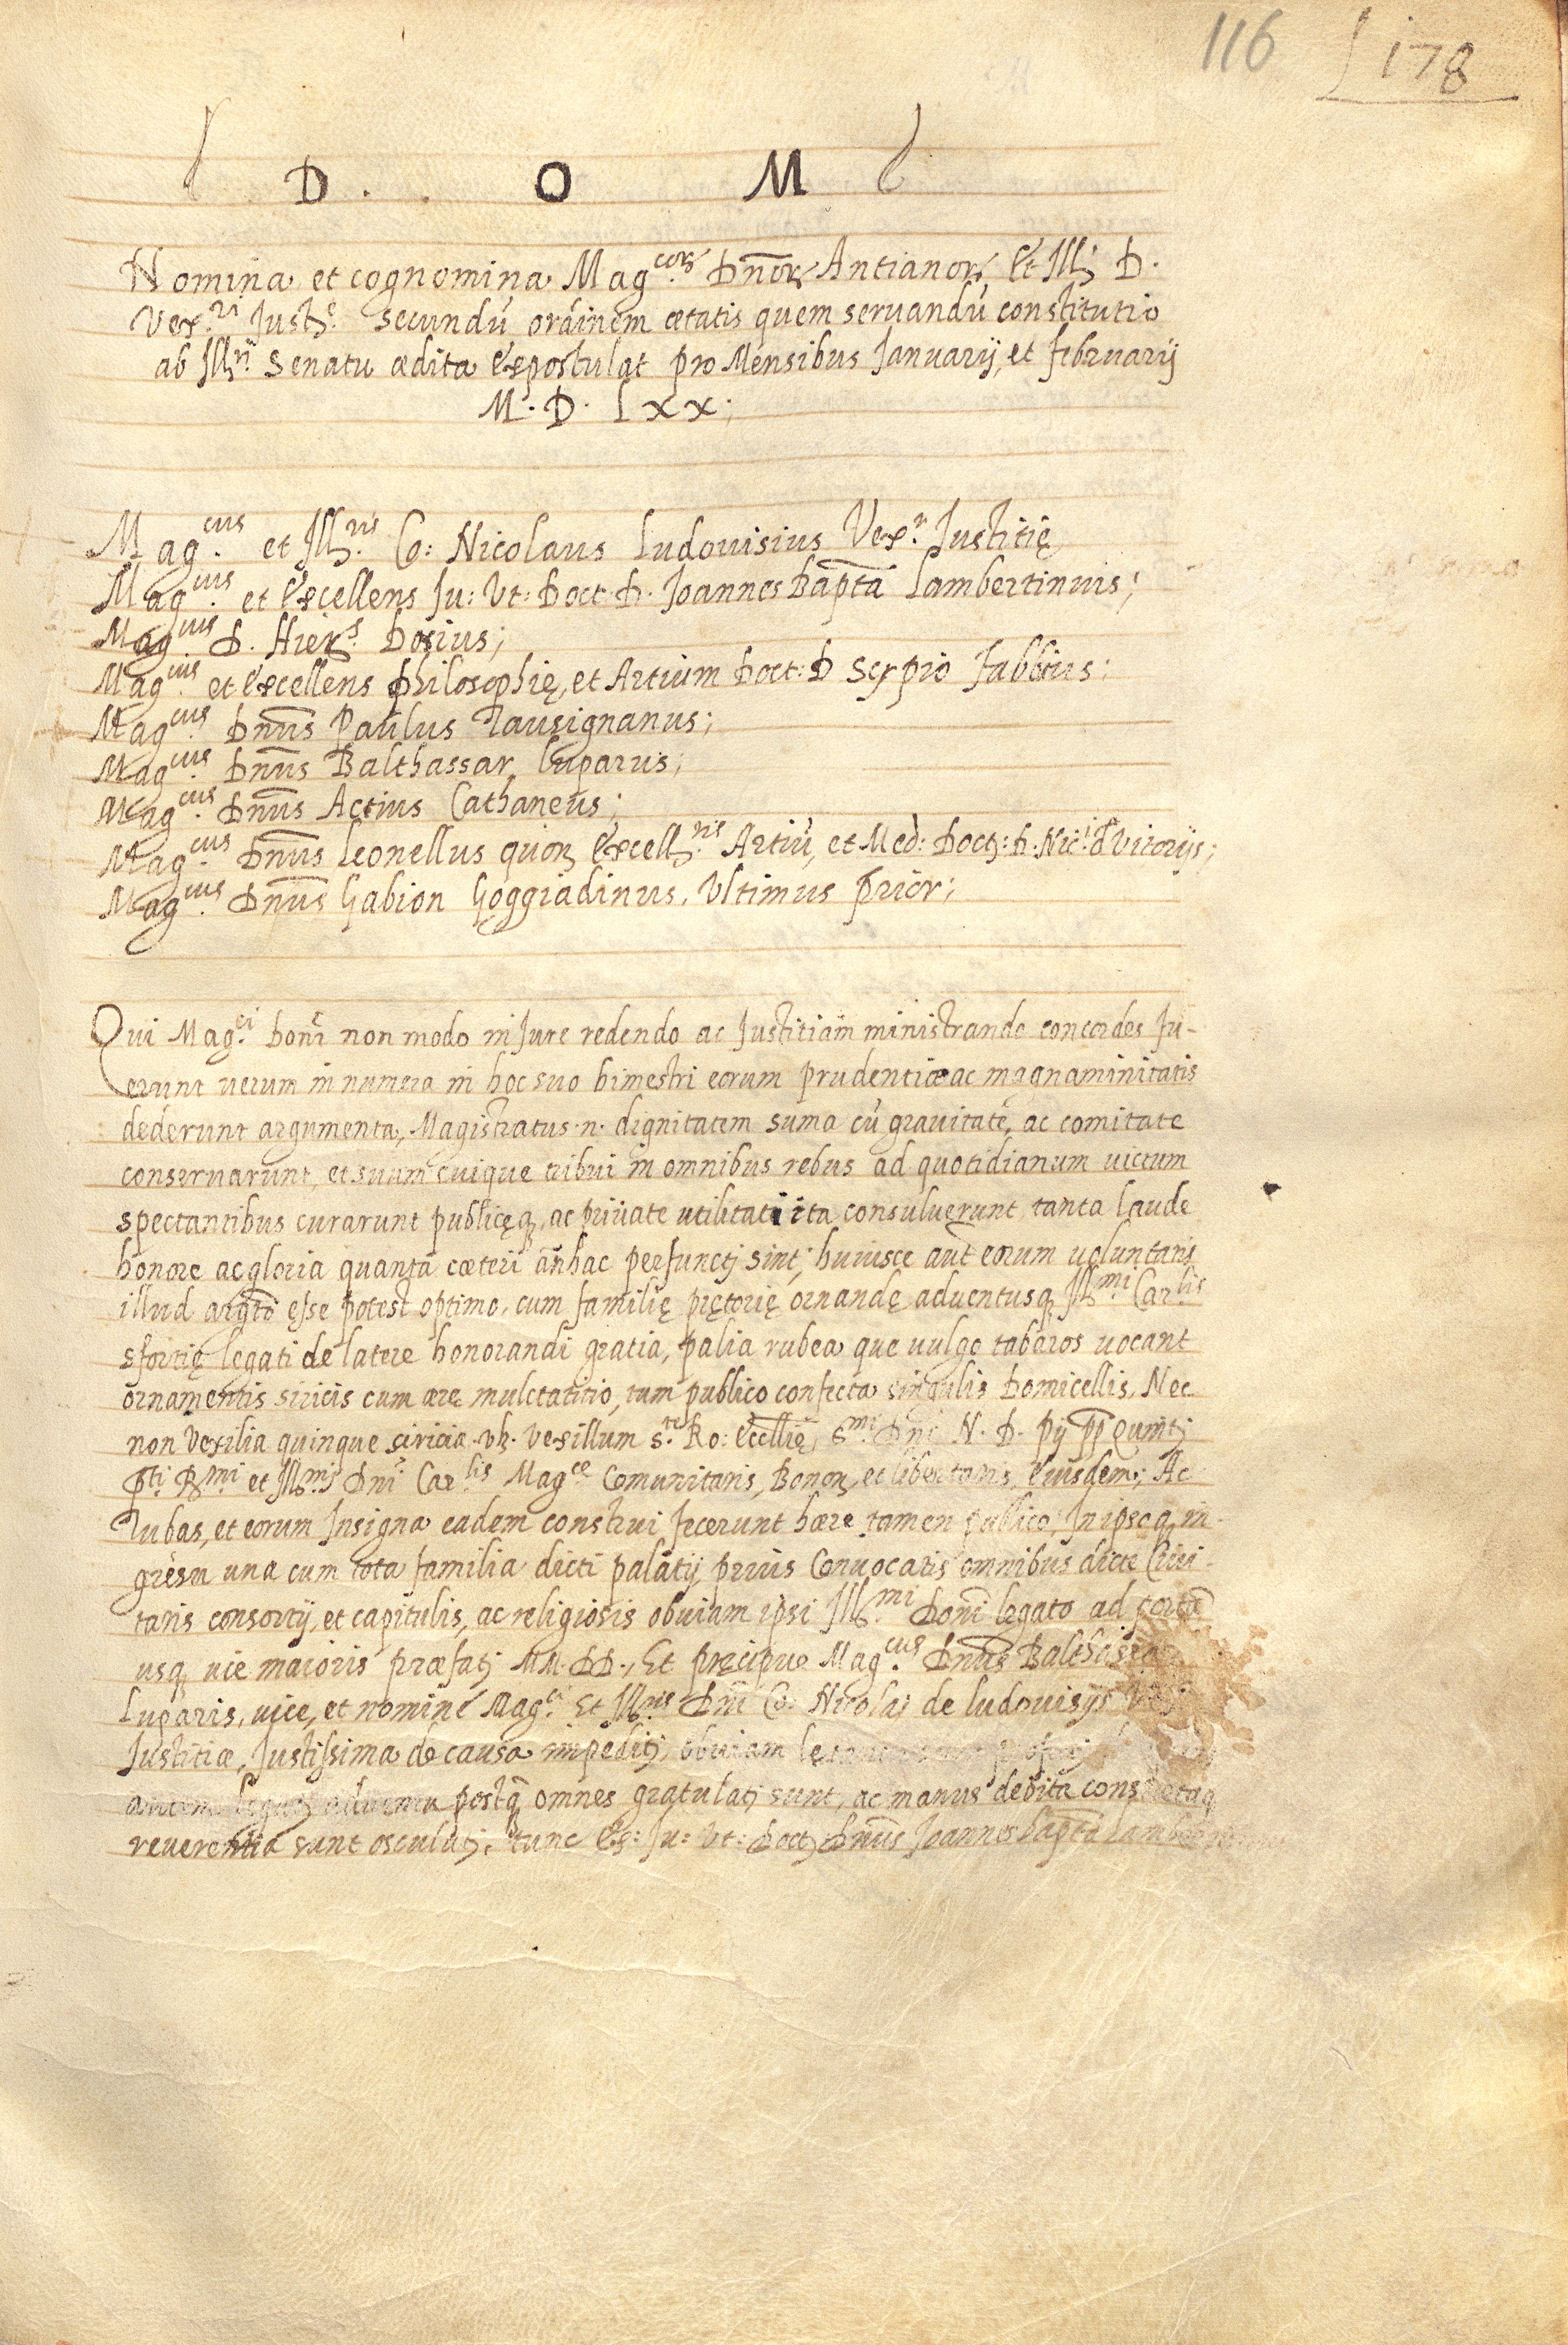 116 178
D. O M
Nomina et cognomina Mag.corꝝ Dn̄orꝝ Antianorꝝ et Ill. D.
Vex.ri Just.e secundū ordinem ætatis quem seruandū constitutio
ab Ill.ri Senatu ædita expostulat pro Mensibus Januarij, et februarij
M. D. Lxx;
Mag.cus et Ill.ris Co: Nicolaus Ludouisius Vex.r Justitię
Mag.cus et Excellens Ju: Vt: Doct. D. Joannes Bapt̄a Lambertinus;
Mag.cus D. Hier.s Dosius;
Mag.cus et Excellens philosophię, et Artium Doct: D Scipio fabbius;
Mag.cus Dn̄us Paulus Tausignanus;
Mag.cus Dn̄us Balthassar Luparus;
Mag.cus Dn̄us Actius Cathaneus;
Mag.cus Dn̄us Leonellus quōꝝ Excell.tis Artiū, et Med: Doct: D. Nic.i d Vitorijs;
Mag.cus Dn̄us Gabion Goggiadinus, Vltimus prior;
Qui Mag.ci Domī non modo in Jure redendo ac Justitiam ministrando concordes fu-
erunt uerum in numera in hoc suo bimestri eorum prudentiæ ac magnaminitatis
dederunt argumenta, Magistratus .n. dignitatem suma cū grauitate, ac comitate
conseruarunt, et suum cuique tribui in omnibus rebus ad quotidianum uictum
spectantibus curarunt publicęq, ac priuate utilitati ita consuluerunt tanta laude
honore ac gloria quanta cæteri anhac perfuncti sint; huiusce aut̄ eorum uoluntatis
illud argt̄o esse potest optimo, cum familię prętorię ornandę aduentusq Ill.mi Car.lis
sfortię legati de latere honorandi gratia, palia rubea que uulgo tabaros uocant
ornamentis siricis cum ære mulctatitio, tum publico confecta singulis Domicellis, Nec
non Vexilia quinque siricia .vꝫ. Vexillum S.te Ro: Eccllię, S.mi Dn̄i N. D. pij pp̄ Quinti
p̄ti R.mi et Ill.mi Dn̄i Car.lis Mag.ce Comunitatis, Bonoꝝ, et libertatis, Eiusdem; Ac
Tubas, et eorum Insigna eadem construi fecerunt hære tamen publico; In ipsoq in-
gresu una cum tota familia dicti palatij, prius Conuocatis omnibus dicte Ciui-
tatis consortij, et capitulis, ac religiosis obuiam ipsi Ill.mi Domī legato ad porta
usq uie maioris præfati MM. DD., Et pręcipue Mag.cus Dn̄us Balthassar
Luparis, uice, et nomine Mag.ci Et Ill.ris Dn̄i Co: Nicolai de ludouisijs Vex
Justitiæ, Justissima de causa impediti, obuiam
aduentu postq̄ omnes gratulati sunt, ac manus debita consuetaq
reuerentia sunt osculati, tunc Ex: Ju: Vt: Doct: Dn̄us Joannes bapt̄a